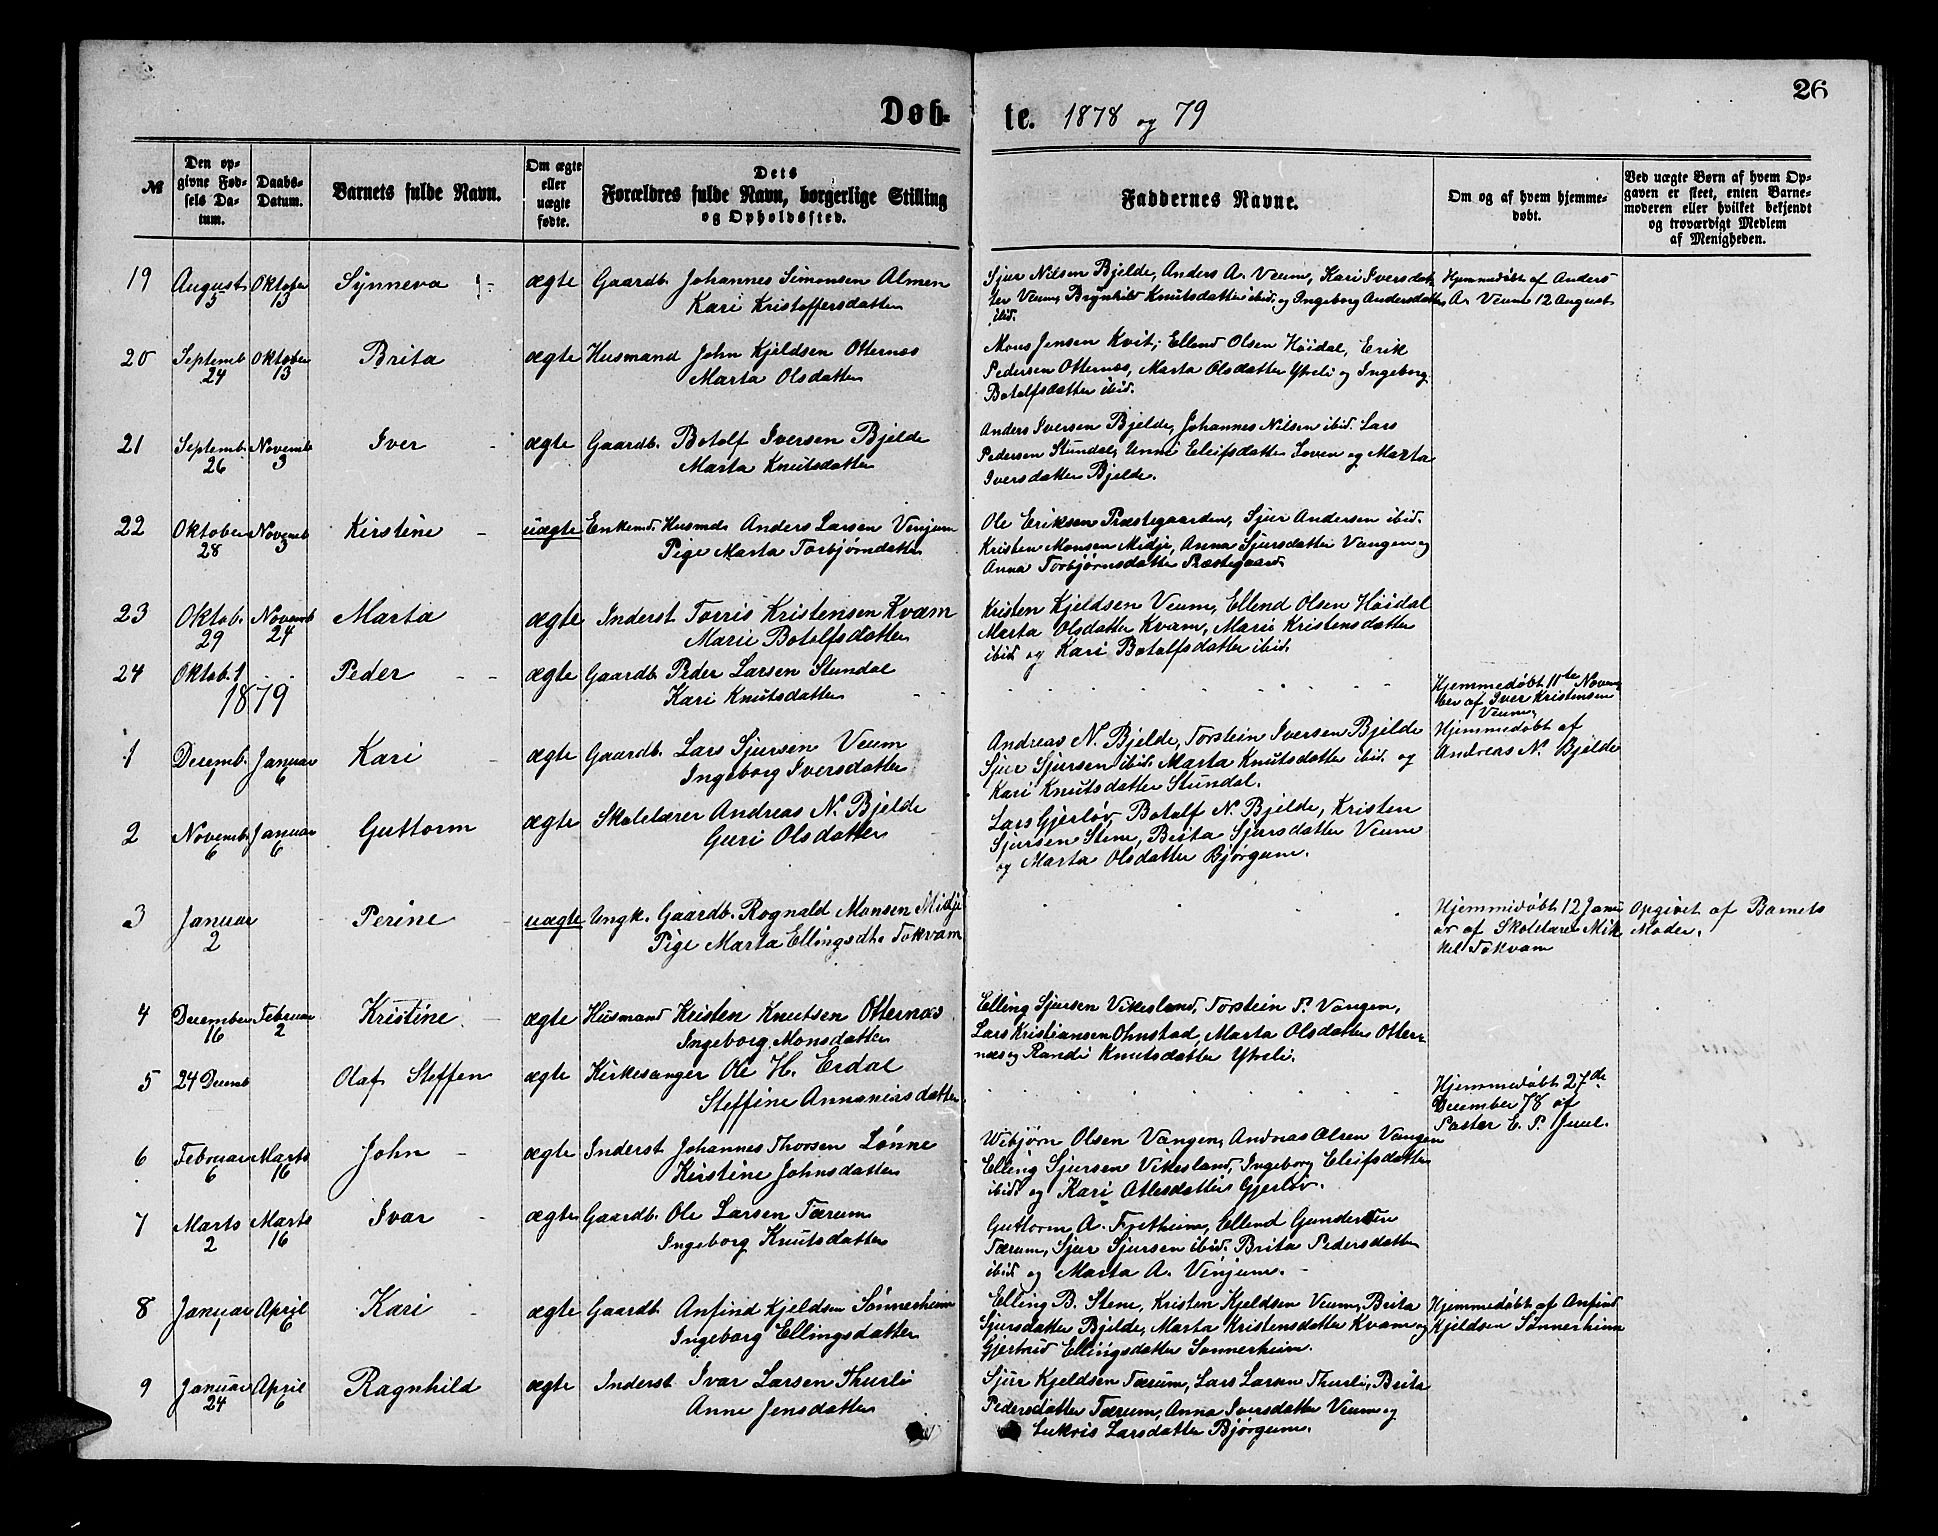 26
Døb- te. 1878 og 79
№
Den opgivne Fødsels Datum.
Daabs-Datum.
Barnets fulde Navn.
Om ægte eller uægte fødte.
Dets Forældres fulde Navn, borgerlige Stilling og Opholdssted.
Faddernes Navne.
Om og af hvem hjemmedøbt.
Ved uægte Børn af hvem Opgaven er skeet, enten Barnemoderen eller hvilket bekjendt og troværdigt Medlem af Menigheden.
19 August 5 Oktober 13 Synneva ægte Gaardb. Johannes Simonsen Almen
Kari Kristoffersdatter
Sjur Nilsen Bjelde, Anders A. Veum, Kari Iversdat-
ter Veum, Brynhild Knutsdatter ibid. og Ingeborg Andersdatter
ibid.
Hjemmedøbt af Anders
A. Veum 12 August
20 Septemb. 24 Oktober 13 Brita ægte Husmand John Kjeldsen Otternæs
Marta Olsdatter
Mons Jensen Kvit, Ellend Olsen Høidal, Erik
Pedersen Otternæs, Marta Olsdatter Ytreli og Ingeborg
Botolfsdatter ibid.
21 Septemb. 26 Novemb 3 Iver ægte Gaardb. Botolf Iversen Bjelde
Marta Knutsdatter
Anders Iversen Bjelde, Johannes Nilsen ibid. Lars
Pedersen Stundal, Unni Eleifsdatter Loven og Marta
Iversdatter Bjelde.
22 Oktober 28 Novemb 3 Kirstine uægte Enkemd. Husmd. Anders Larsen Vinjum
Pige Marta Torbjørndatter
Ole Eriksen Præstegaarden, Sjur Andersen ibid.
Kristen Monsen Midje, Anna Sjursdatter Vangen og
Anna Torbjørnsdatter Præstegaard.
23 Oktob. 29 Novemb 24 Marta ægte Inderst Torris Kristensen Kvam
Marie Botolfsdatter
Kristen Kjeldsen Veum, Ellend Olsen Høidal
Marta Olsdatter Kvam, Mari Kristensdatter
ibid og Kari Botolfsdatter ibid.
24 Oktob. 1 Peder ægte Gaardb. Peder Larsen Stundal
Kari Knutsdatter
Hjemmedøbt 11te Novem-
ber af Iver Kristensen
Veum,
1879
1 Decemb. 1 Januar 6 Kari ægte Gaardb. Lars Sjursen Veum
Ingeborg Iversdatter
Andreas N. Bjelde, Torstein Iversen Bjelde
Sjur Sjursen ibid. Marta Knutsdatter ibid. og
Kari Knutsdatter Stundal.
Hjemmedøbt af
Andreas N. Bjelde
2 Novemb. 6 Januar 6 Guttorm ægte Skolelærer Andreas N. Bjelde
Guri Olsdatter
Lars Gjerløv, Botolf N. Bjelde, Kristen
Sjursen Stene, Brita Sjursdatter Veum
og Marta Olsdatter Bjørgum.
3 Januar 2 Perine uægte Ungk. Gaardb. Rognald Monsen Midje
Pige Marta Ellingsdtr. Tokvam
Hjemmedøbt 12 Janu
ar af Skolelærer Mik
kel Tokvam
Opgivet af Barnets
Moder.
4 December 16 Februar 2 Kristine ægte Husmand Kristen Knutsen Otternæs
Ingeborg Monsdatter
Elling Sjursen Vikesland, Torstein P. Vangen,
Lars Kristiansen Ohnstad, Marta Olsdatter Otter-
næs og Randi Knutsdatter Ytreli.
5 24 Decemb Olaf Steffen ægte Kirkesanger Ole H. Erdal
Steffine Annaniasdatter
Hjemmedøbt 27de
December 78 af
Pastor E. P. Juul.
6 Februar 6 Marts 16 John ægte Inderst Johannes Thorsen Lønne
Kirstine Johnsdatter
Wibjørn Olsen Vangen, Andreas Olsen Vangen
Elling Sjursen Vikesland, Ingeborg Eleifsdatter
ibid. og Kari Atlesdatter Gjerløv.
7 Marts 2 Marts 16 Ivar ægte Gaardb. Ole Larsen Tærum
Ingeborg Knutsdatter
Guttorm A. Fretheim, Ellend Gundersen
Tærum, Sjur Sjursen ibid. Brita Pedersdatter
ibid og Marta A. Vinjum.
8 Januar 1 April 6 Kari ægte Gaardb. Anfind Kjeldsen Sønnerheim
Ingeborg Ellingsdatter
Elling B. Stene, Kristen Kjeldsen Veum, Brita
Sjursdatter Bjelde, Marta Kristensdatter Kvam og
Gjertrud Ellingsdatter Sønnerheim.
Hjemmedøbt af Anfind
Kjeldsen Sønnerheim
9 Januar 24 April 6 Ragnhild ægte Inderst Ivar Larsen Thurli
Anne Jensdatter
Sjur Kjeldsen Tærum, Lars Larsen Thurli, Brita
Pedersdatter Tærum, Anna Iversdatter Veum og
Lukris Larsdatter Bjørgum.